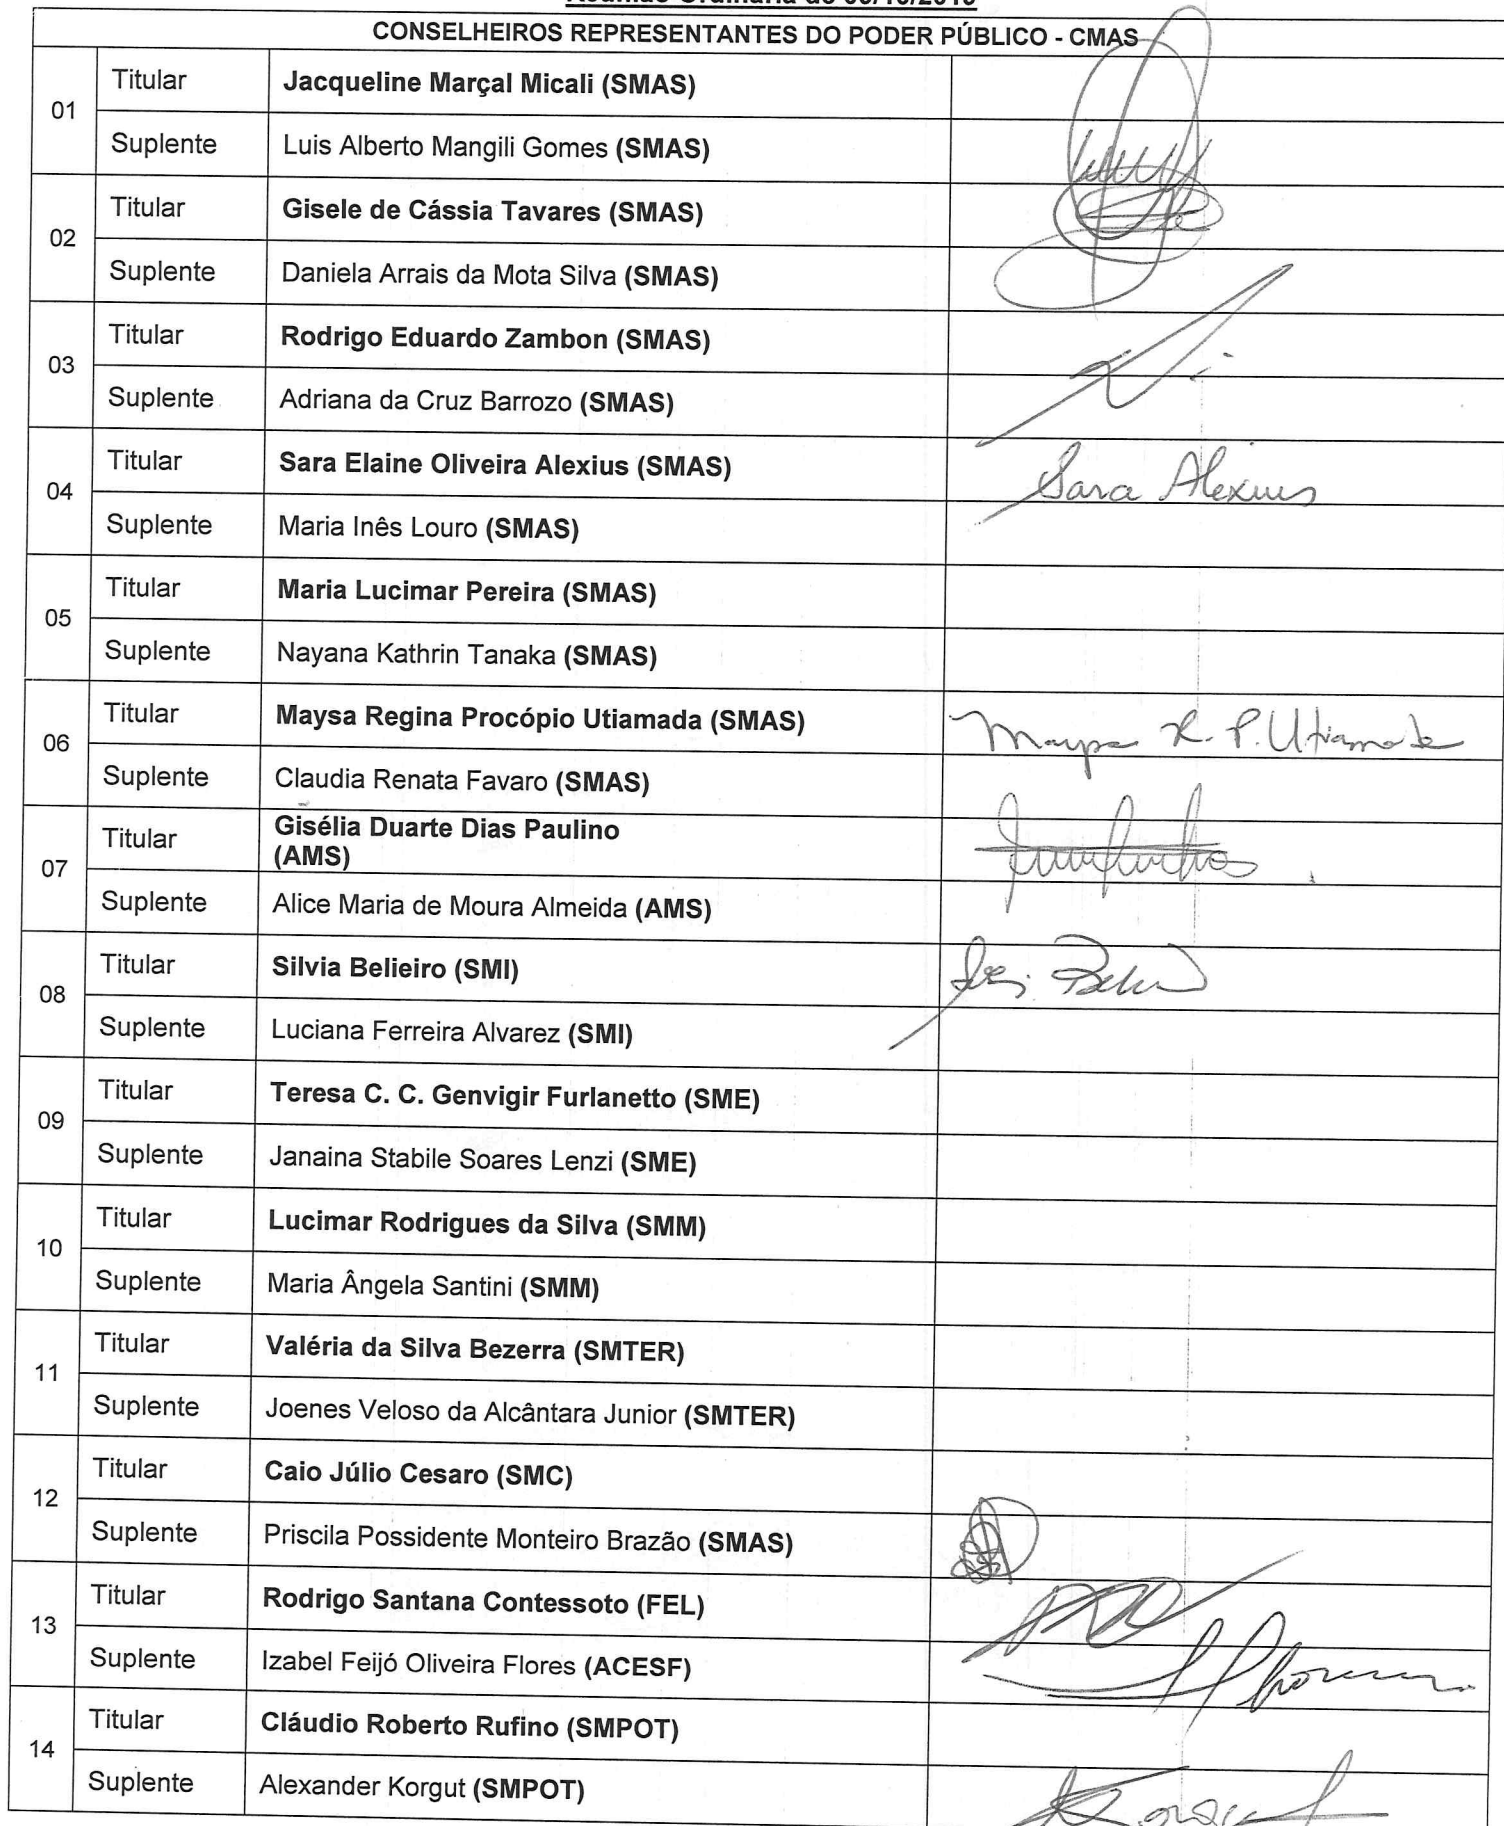 CONSELHEIROS REPRESENTANTES DO PODER PÚBLICO - CMAS
01
Titular Jacqueline Marçal Micali (SMAS)
Suplente Luis Alberto Mangili Gomes (SMAS)
02
Titular Gisele de Cássia Tavares (SMAS)
Suplente Daniela Arrais da Mota Silva (SMAS)
03
Titular Rodrigo Eduardo Zambon (SMAS)
Suplente Adriana da Cruz Barrozo (SMAS)
04
Titular Sara Elaine Oliveira Alexius (SMAS) Sara Alexius
Suplente Maria Inês Louro (SMAS)
05
Titular Maria Lucimar Pereira (SMAS)
Suplente Nayana Kathrin Tanaka (SMAS)
06
Titular Maysa Regina Procópio Utiamada (SMAS) Maysa R. P. Utiamada
Suplente Claudia Renata Favaro (SMAS)
07
Titular Gisélia Duarte Dias Paulino
(AMS)
Suplente Alice Maria de Moura Almeida (AMS)
08
Titular Silvia Belieiro (SMI)
Suplente Luciana Ferreira Alvarez (SMI)
09
Titular Teresa C. C. Genvigir Furlanetto (SME)
Suplente Janaina Stabile Soares Lenzi (SME)
10
Titular Lucimar Rodrigues da Silva (SMM)
Suplente Maria Ângela Santini (SMM)
11
Titular Valéria da Silva Bezerra (SMTER)
Suplente Joenes Veloso da Alcântara Junior (SMTER)
12
Titular Caio Júlio Cesaro (SMC)
Suplente Priscila Possidente Monteiro Brazão (SMAS)
13
Titular Rodrigo Santana Contessoto (FEL)
Suplente Izabel Feijó Oliveira Flores (ACESF)
14
Titular Cláudio Roberto Rufino (SMPOT)
Suplente Alexander Korgut (SMPOT)